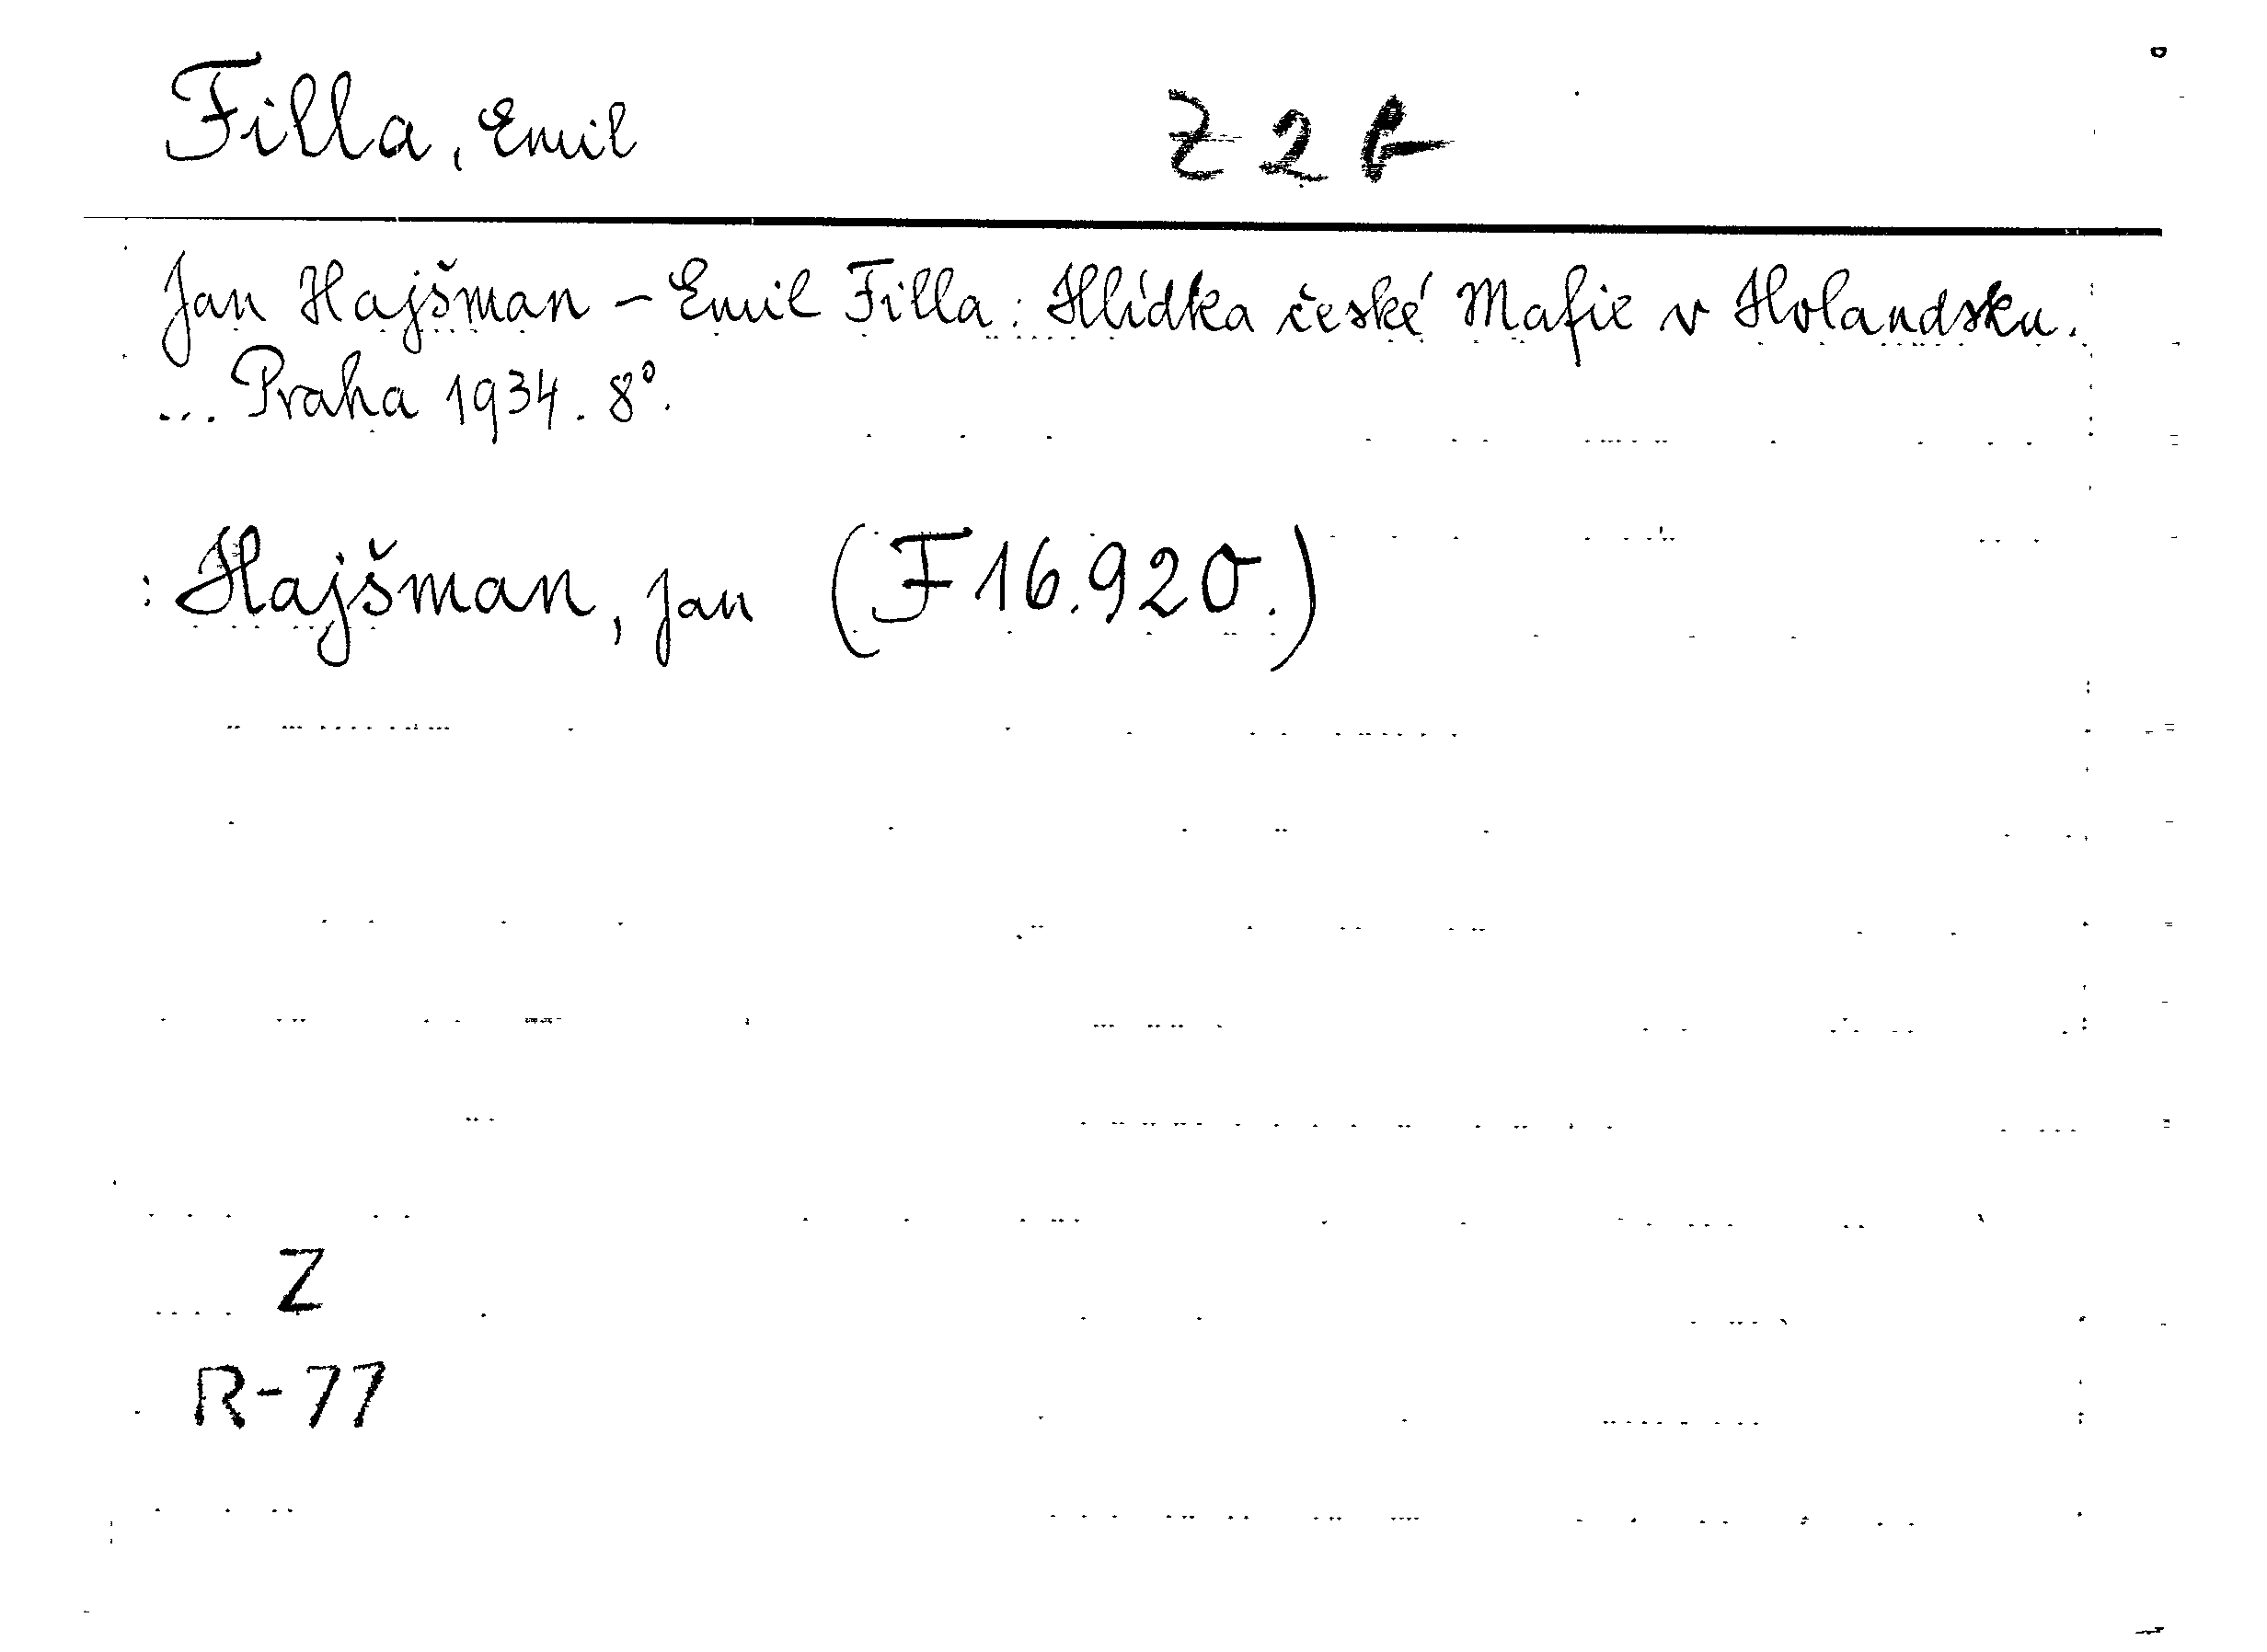 Filla, Emil Z 2
Jan Hajšman – Emil Filla: Hlídka české Mafie v Holandsku.
... Praha 1934. 8°.
: Hajšman, Jan (F 16.920.)
Z
R-77